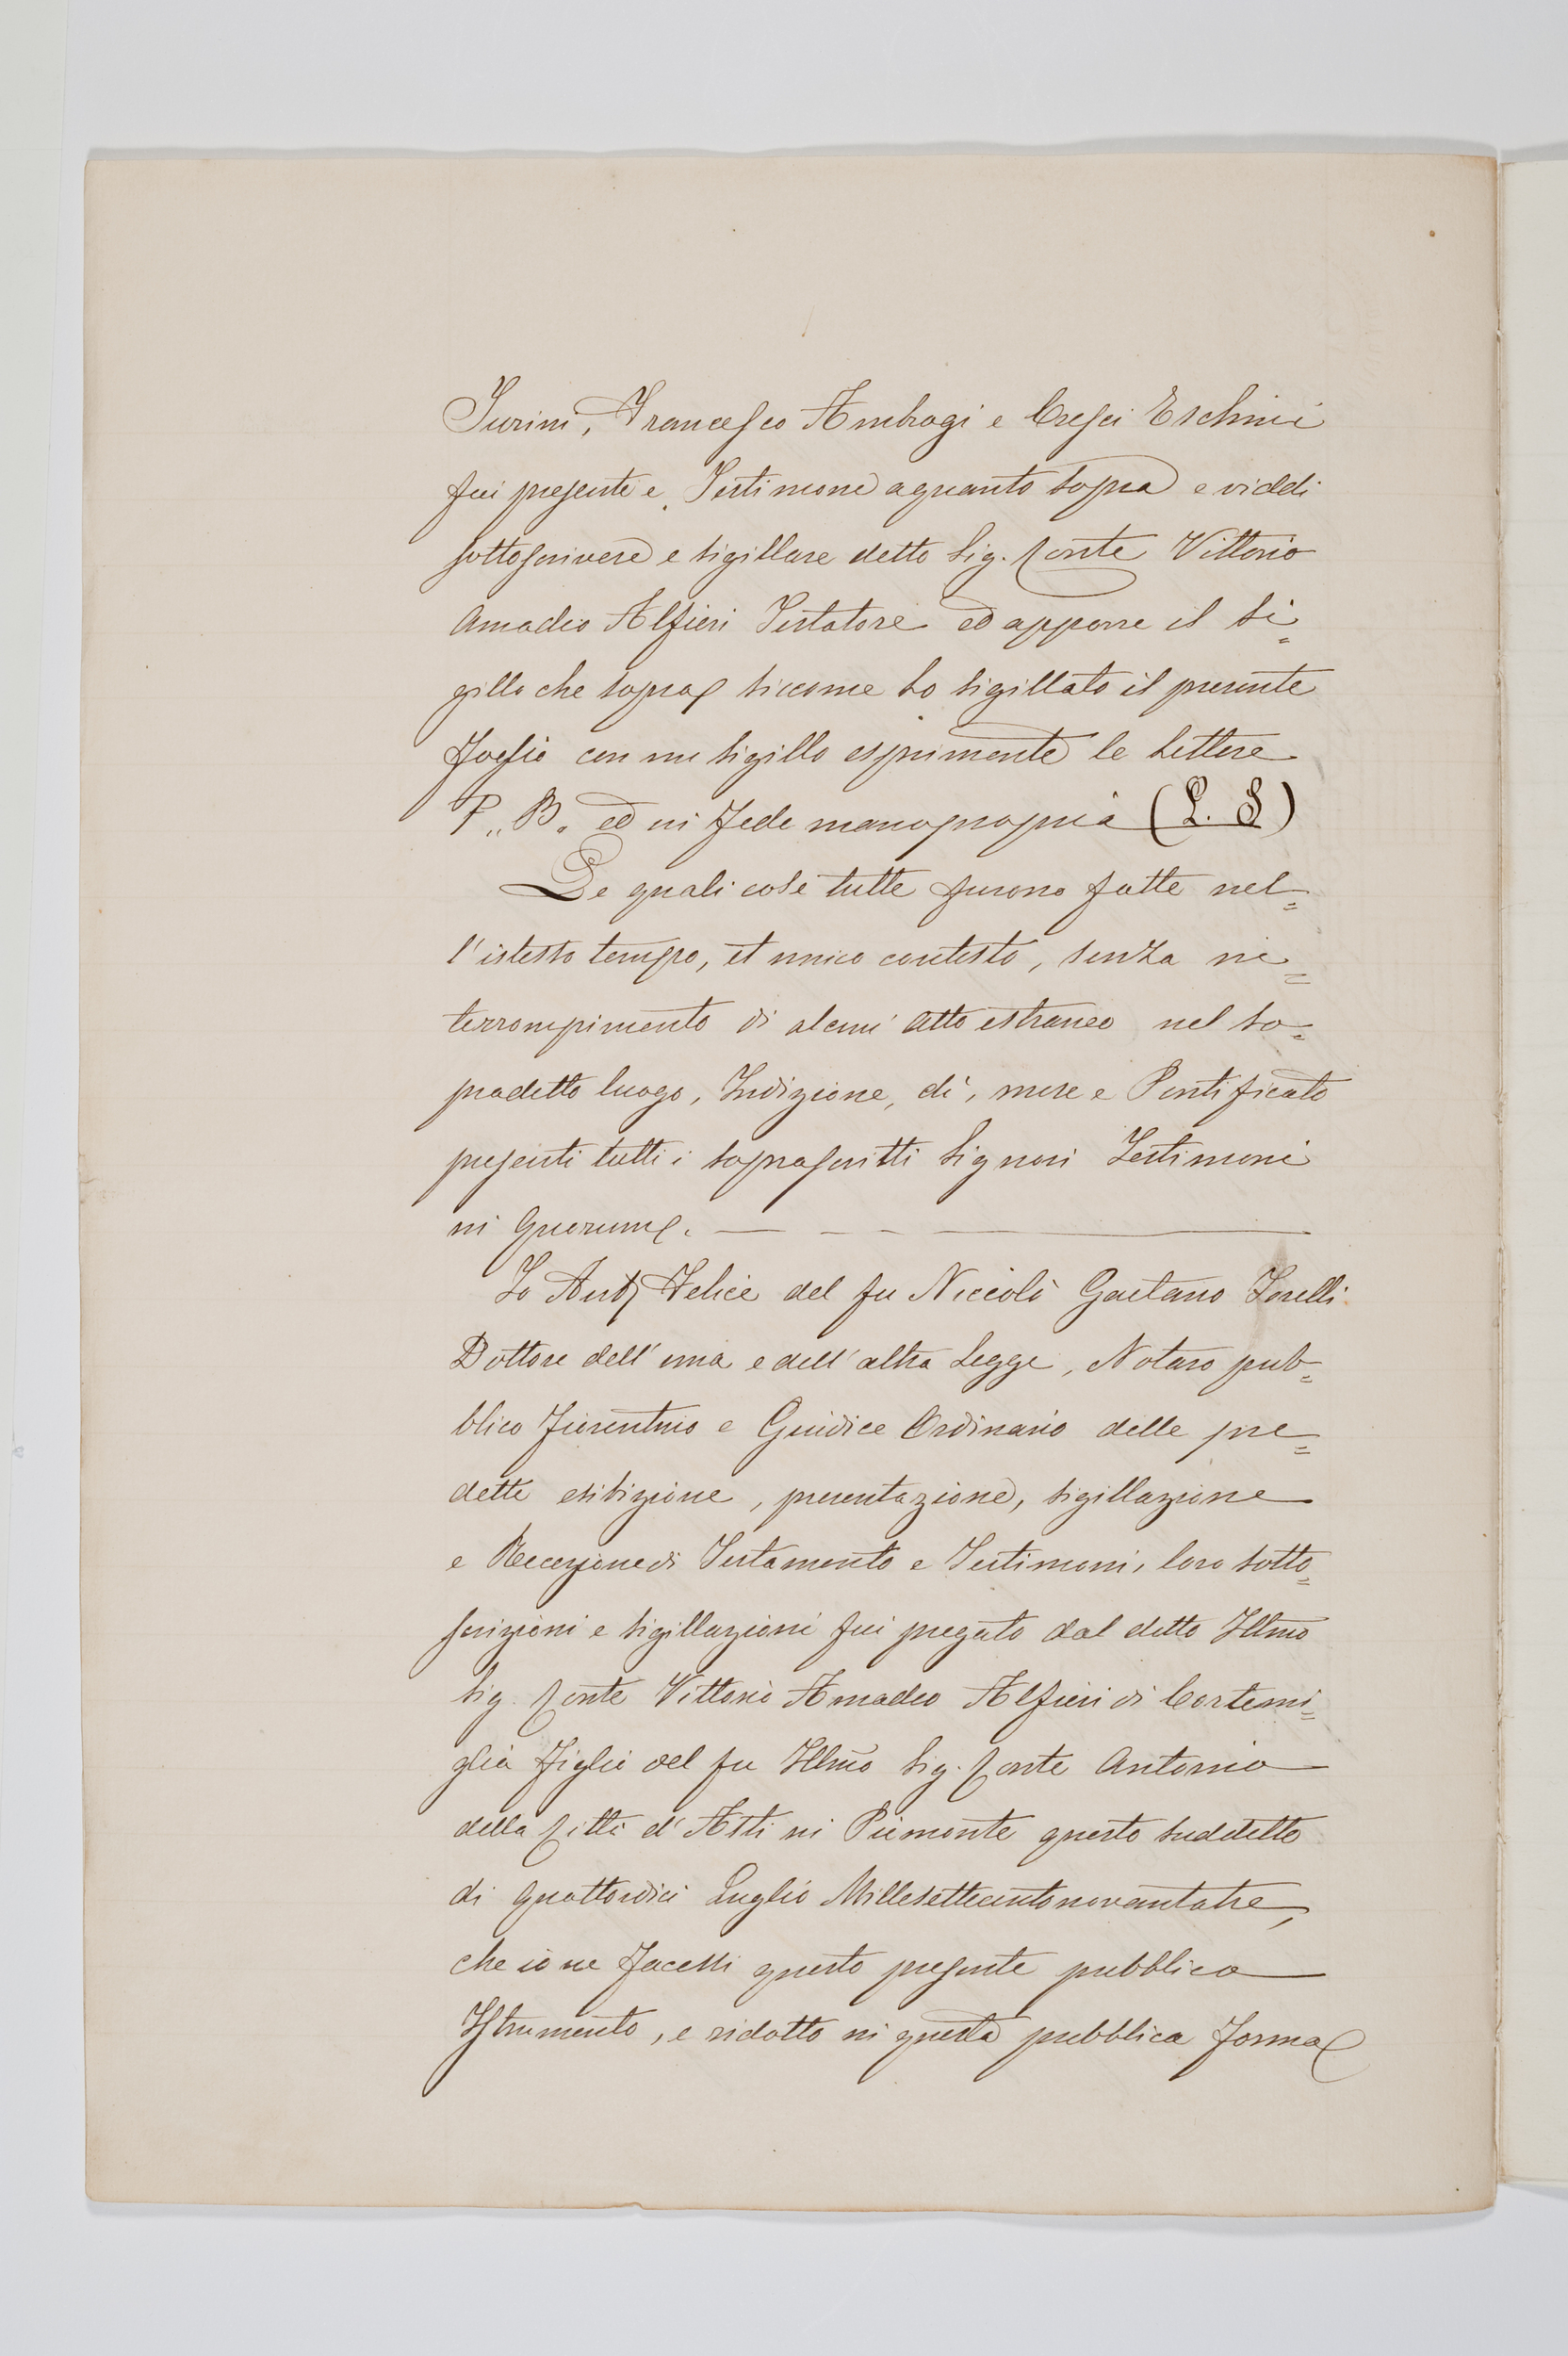 Turini, Francesco Ambrogi e Cresci Eschini
fui presente e Testimone a quanto sopra e viddi
sottoscrivere e sigillare detto Sig. Conte Vittorio
Amadeo Alfieri Testatore ed apporre il Si=
gillo che sopra siccome ho sigillato il presente
Foglio con un sigillo esprimente le Lettere
P„ B. ed in Fede manopropria (L. S)
Le quali cose tutte furono fatte nel=
l'istesso tempo, et unico contesto, senza in=
terrompimento di alcun' Atto estraneo nel so=
pradetto luogo, Indizione, dì, mese e Pontificato
presenti tutti i soprascritti Signori Testimoni
in Quorum.
Io Antº Felice del fu Niccolò Gaetano Torelli
Dottore dell'una e dell'altra Legge, Notaro pub=
blico Fiorentino e Giudice Ordinario delle pre=
dette esibizione, presentazione, sigillazione
e Recezione di Testamento e Testimoni, loro sotto=
scrizioni e sigillazioni fui pregato dal detto Illmo
Sig. Conte Vittorio Amadeo Alfieri di Cortemi=
glia Figlio del fu Illmo Sig. Conte Antonio
della Città d'Asti in Piemonte questo suddetto
dì quattordici Luglio Millesettecentonovantatre,
che io ne facessi questo presente pubblico
Istrumento, e ridotto in questa pubblica forma